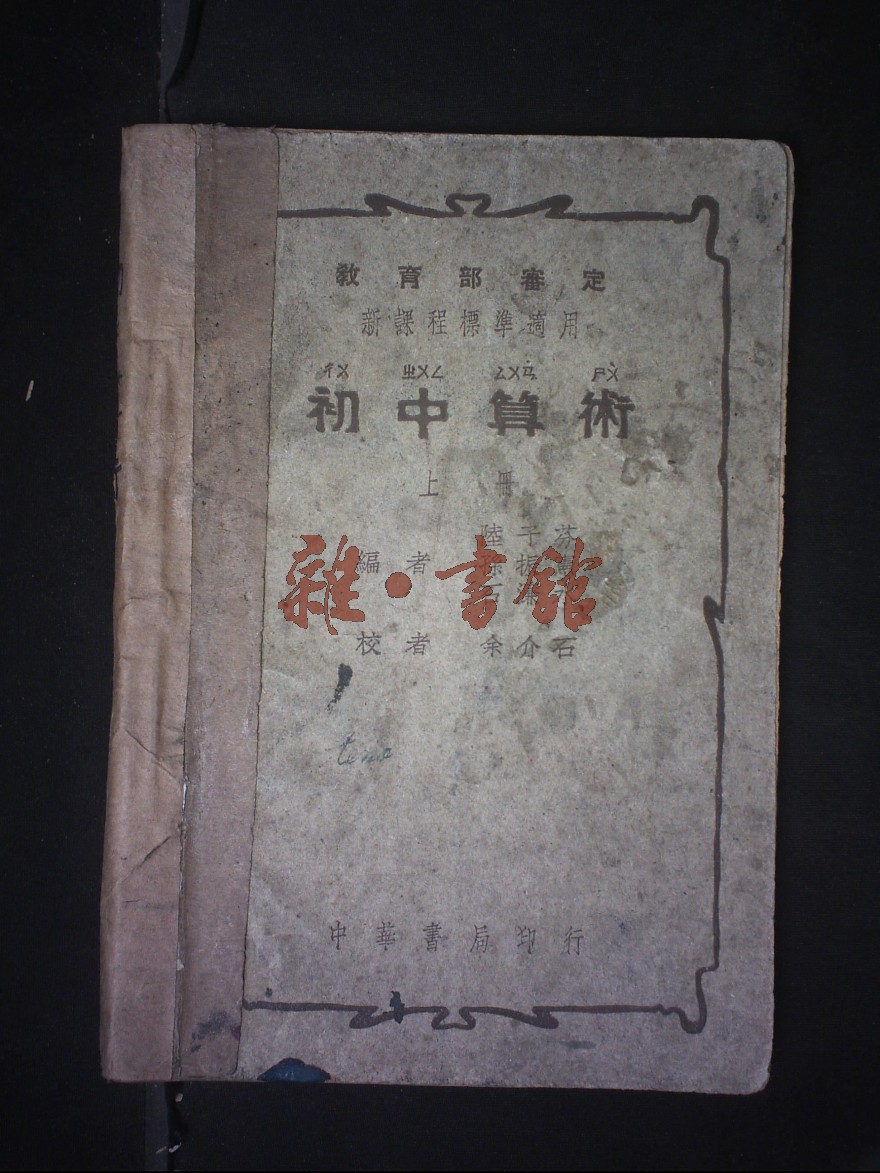 教育部審定
新課程標準適用
ㄔㄨ ㄓㄨㄥ ㄙㄨㄢˋ ㄕㄨˋ
初中算術
上冊
陸子芬
編者
雜·書館
校者 余介石
tima
中華書局印行